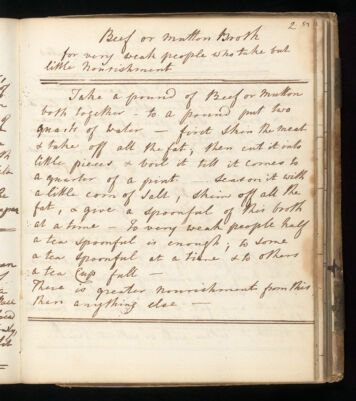 Beef or Mutton Broth
for very weak people who take but
little Nourishment
Take a pound of Beef or Mutton
both together - to a pound put two
quarts of water - first skin the meat
& take off all the fat, then cut it into
little pieces & boil it till it comes to
a quarter of a pint - season it with
a little corn of Salt, skim off all the
fat, & give a spoonful of this broth
at a time - To very weak people half
a tea spoonful is enough, to some
a tea spoonful at a time & to others
a tea Cup full -
There is greater nourishment from this
then anything else -